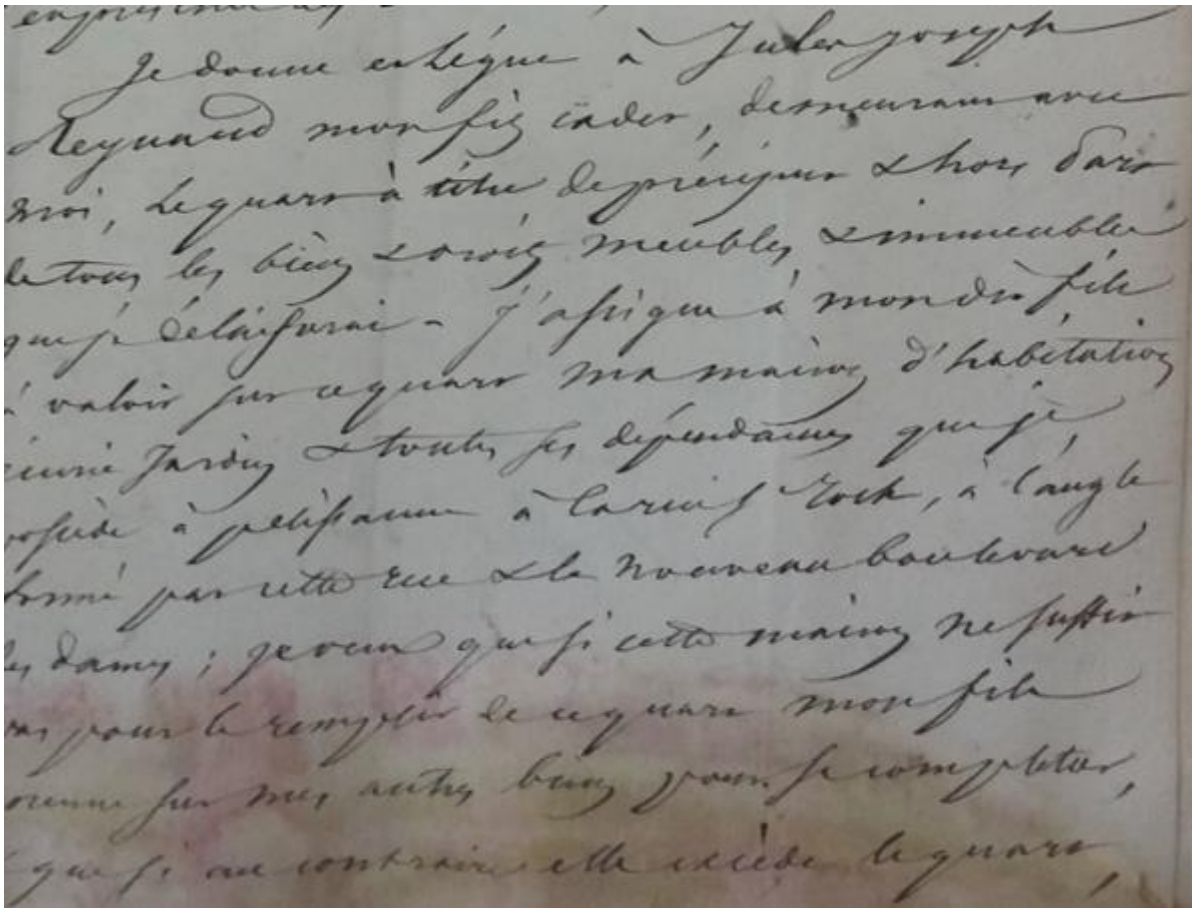 Je donne et lègue à Jules joseph
Reynaud mon fils cadet, demeurant avec
moi, le quart à titre de préciput & hors part
de tous les biens & droits meubles & immeubles
que je délaisserai - j'assigne à mon dit fils
à valoir sur ce quart ma maison d'habitation
écurie Jardin & toutes ses dépendances que je
possède à pélissanne à la rue St Roch, à l'angle
formé par cette rue & le nouveau boulevard
des dames ; je veux que si cette maison ne suffit
pas pour le remplir de ce quart mon fils
prenne sur mes autres biens pour se completter,
que si au contraire elle excède le quart,